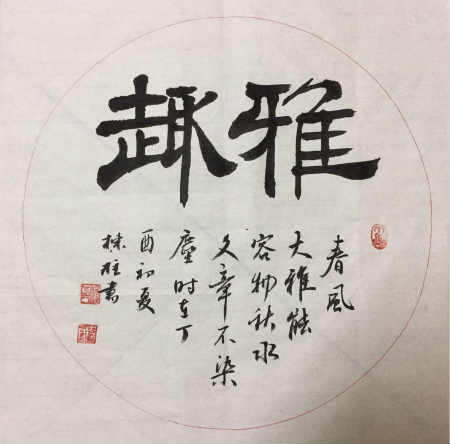 雅趣
春風
大雅能
容物秋水
文章不染
塵时在丁
酉初夏
柱書